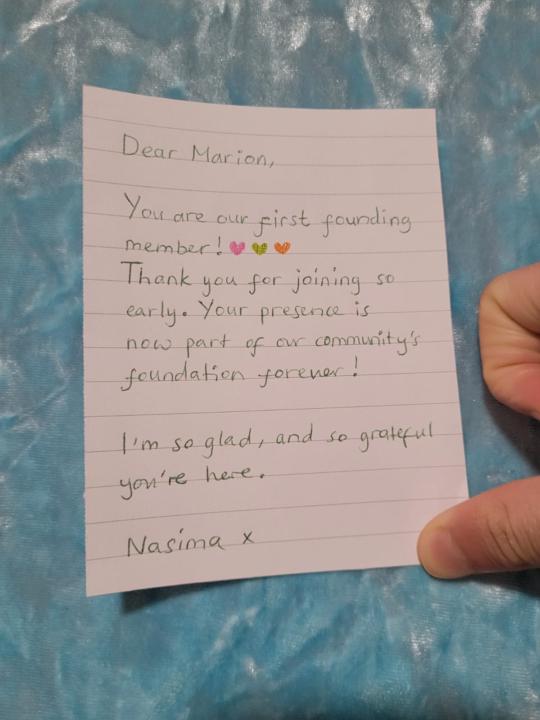 Dear Marion,
You are our first founding
member! 🩷💚🧡
Thank you for joining so
early. Your presence is
now part of our community's
foundation forever!
I'm so glad, and so grateful
you're here.
Nasima x